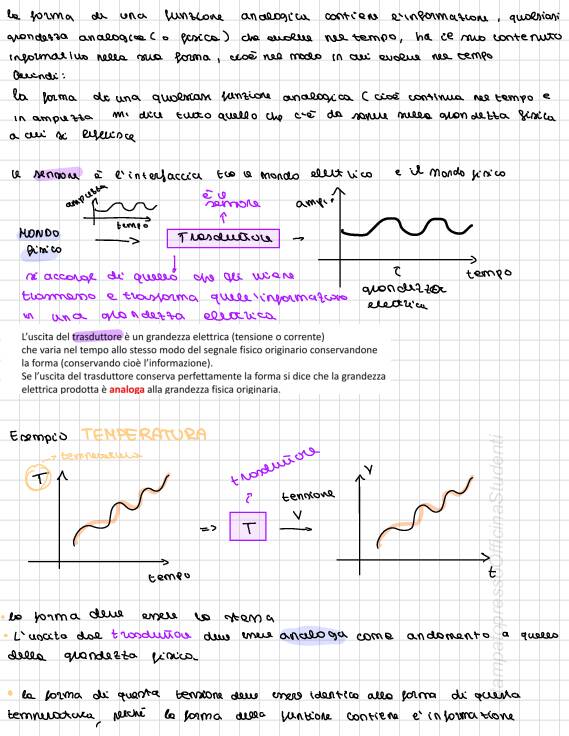 la forma di una funzione analogica contiene l'informazione, qualsiasi
grandezza analogica (o fisica) che evolve nel tempo, ha il suo contenuto
informativo nella sua forma, cioè nel modo in cui evolve nel tempo
Quindi:
la forma di una qualsiasi funzione analogica (cioè continua nel tempo e
in ampiezza mi dice tutto quello che c'è da sapere sulla grandezza fisica
a cui si riferisce
il sensore è l'interfaccia tra il mondo elettrico e il mondo fisico
ampiezza
tempo
è il
sensore
ampi.
MONDO
fisico
Trasduttore
tempo
grandezza
elettrica
si accorge di quello che gli viene
trasmesso e trasforma quell'informazione
in una grandezza elettrica
L'uscita del trasduttore è un grandezza elettrica (tensione o corrente)
che varia nel tempo allo stesso modo del segnale fisico originario conservandone
la forma (conservando cioè l'informazione).
Se l'uscita del trasduttore conserva perfettamente la forma si dice che la grandezza
elettrica prodotta è analoga alla grandezza fisica originaria.
Esempio TEMPERATURA
temperatura
T
tempo
=>
trasduttore
T
tensione
V
V
t
lo forma deve essere la stessa
L'uscita dal trasduttore deve essere analoga come andamento a quello
della grandezza fisica.
la forma di questa tensione deve essere identica alla forma di questa
temperatura, perché la forma della funzione contiene l'informazione